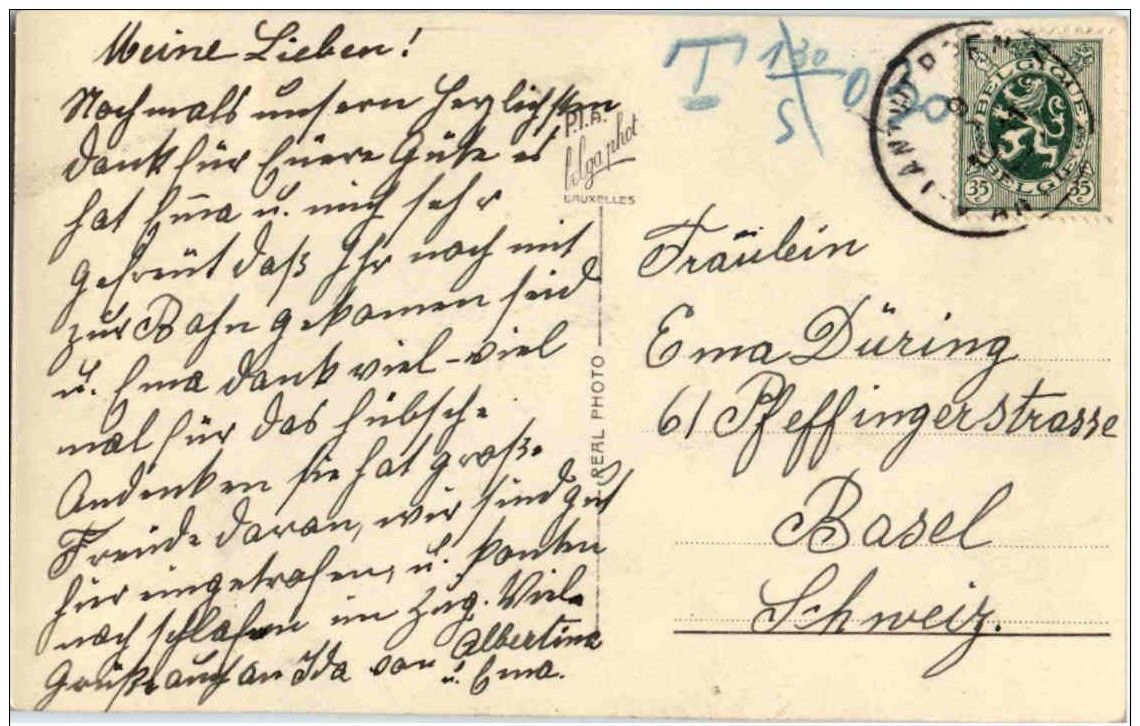 Meine Lieben!
Nochmals unsern herzlichsten
Dank für Euere Güte es
hat Ema u. mich sehr
gefreut daß Ihr noch mit
zur Bahn gekomen seid
u. Ema dankt viel-viel
mal für das hübsche
Andenken sie hat große
Freude daran, wir sind gut
hier eingetrofen, u. konten
noch schlafen im Zug. Viele
Grüße auch an Ida von Albertina
u. Ema.
P.I.B.
belga phot
BRUXELLES
REAL PHOTO
T 1.30
5
ANTWERPEN
BELGIQUE
BELGIE
35 35
Fräulein
Ema Düring
61 Pfeffingerstrasse
Basel
Schweiz.